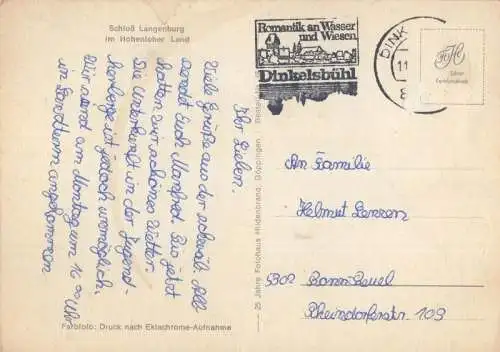 Schloß Langenburg
im Hohenloher Land
Ihr Lieben.
Viele Grüße aus der schwäb. Alb
sendet Euch Manfred. Bis jetzt
hatten wir schönes Wetter.
Die Unterkunft in der Jugend-
herberge ist jedoch unmöglich.
Wir sind am Montag um 16 00 Uhr
in angekommen
Farbfoto: Druck nach Ektachrome-Aufnahme
25 Jahre Fotohaus Hildenbrand, Göppingen.
Romantik an Wasser
und Wiesen.
Dinkelsbühl
DINK
11
8
An Familie
Helmut Lenzen
5302 Bonn-Beuel
Rheindorferstr. 109